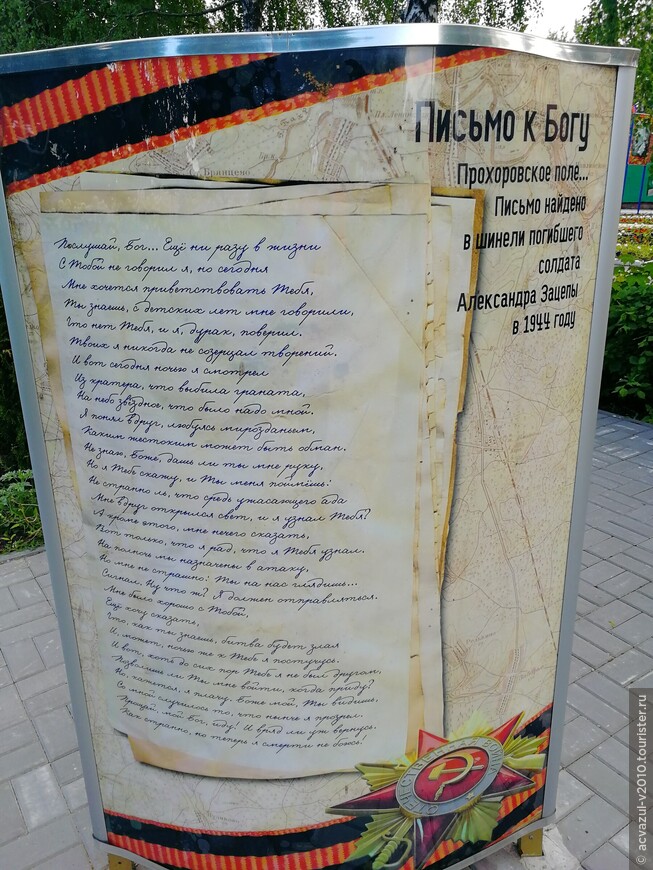 Письмо к Богу
Прохоровское поле...
Письмо найдено
в шинели погибшего
солдата
Александра Зацепы
в 1944 году
Послушай, Бог... Ещё ни разу в жизни
С Тобой не говорил я, но сегодня
Мне хочется приветствовать Тебя,
Ты знаешь, с детских лет мне говорили,
Что нет Тебя, и я, дурак, поверил.
Твоих я никогда не созерцал творений.
И вот сегодня ночью я смотрел
Из кратера, что выбила граната,
На небо звёздное, что было надо мной.
Я понял вдруг, любуясь мирозданьем,
Каким жестоким может быть обман.
Не знаю, Боже, дашь ли ты мне руку,
Но я Тебе скажу, и Ты меня поймёшь:
Не странно ль, что средь ужасающего ада
Мне вдруг открылся свет, и я узнал Тебя?
А кроме этого, мне нечего сказать,
Вот только, что я рад, что я Тебя узнал.
На полночь мы назначены в атаку,
Но мне не страшно: Ты на нас глядишь...
Сигнал. Ну что ж? Я должен отправляться.
Мне было хорошо с Тобой,
Ещё хочу сказать,
Что, как ты знаешь, битва будет злая
И, может, ночью же к Тебе я постучусь.
И вот, хоть до сих пор Тебе я не был другом,
Позволишь ли Ты мне войти, когда приду?
Но, кажется, я плачу. Боже мой, Ты видишь,
Со мной случилось то, что нынче я прозрел.
Прощай, мой Бог, иду! И вряд ли уж вернусь.
Как странно, но теперь я смерти не боюсь.
Брянцево
© acvazul-v2010.tourister.ru